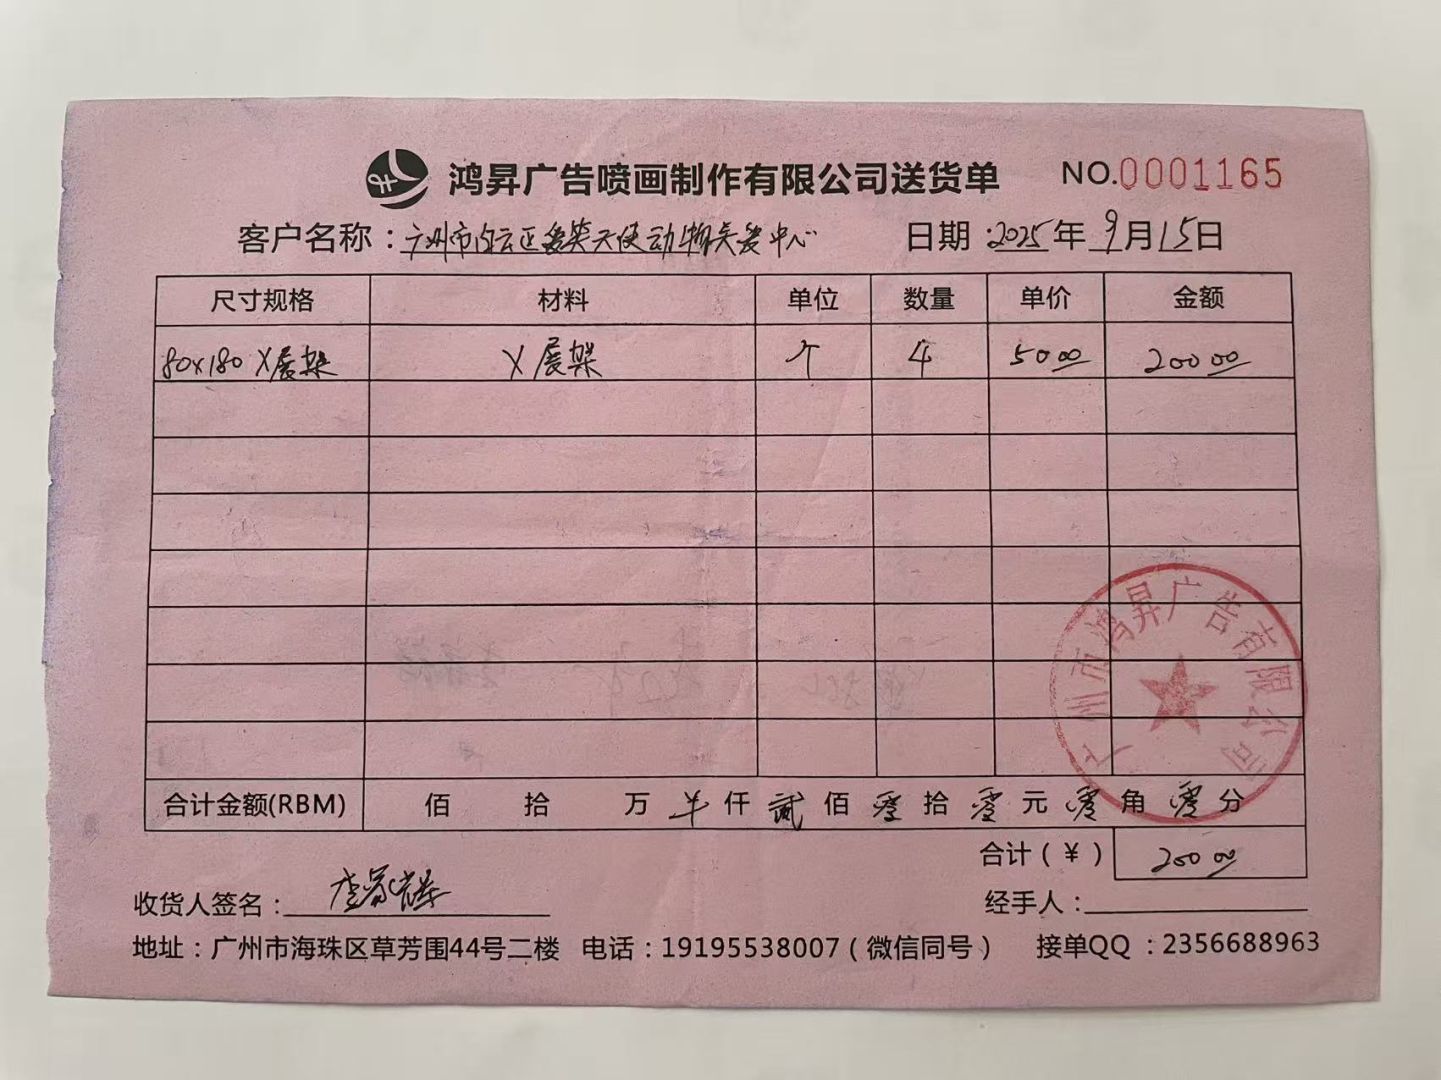 鸿昇广告喷画制作有限公司送货单 NO.0001165
客户名称：广州市白云区爱笑天使动物关爱中心 日期：2025年9月15日
尺寸规格 材料 单位 数量 单价 金额
80x180 X展架 X展架 个 4 5000 20000
广州市鸿昇广告有限公司
合计金额(RBM) 佰 拾 万 仟 贰佰 零拾 零元 零角 零分
合计（￥） 20000
收货人签名： 经手人：
地址：广州市海珠区草芳围44号二楼 电话：19195538007（微信同号） 接单QQ：2356688963